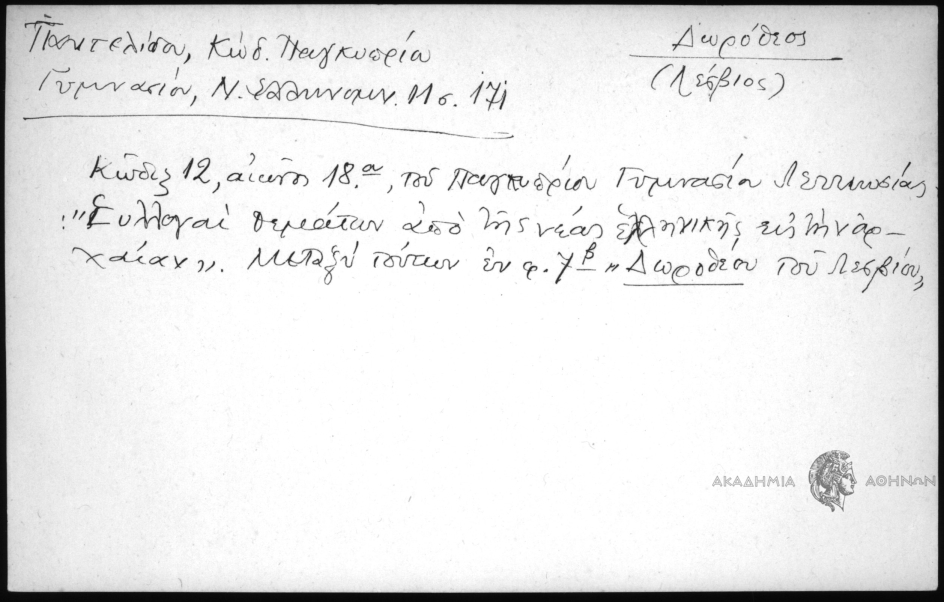 Παντελίδου, Κώδ. Παγκυπρίου
Γυμνασίου, Ν. Ἑλληνομν. 11 σ. 171
Δωρόθεος
(Λέσβιος)
Κῶδιξ 12, αἰῶνος 18.ου, τοῦ Παγκυπρίου Γυμνασίου Λευκωσίας
: "Συλλογαὶ θεμάτων ἀπὸ τῆς νέας ἑλληνικῆς εἰς τὴν ἀρ-
χαίαν". Μεταξὺ τούτων ἐν φ. 7β "Δωροθέου τοῦ Λεσβίου"
ΑΚΑΔΗΜΙΑ ΑΘΗΝΩΝ